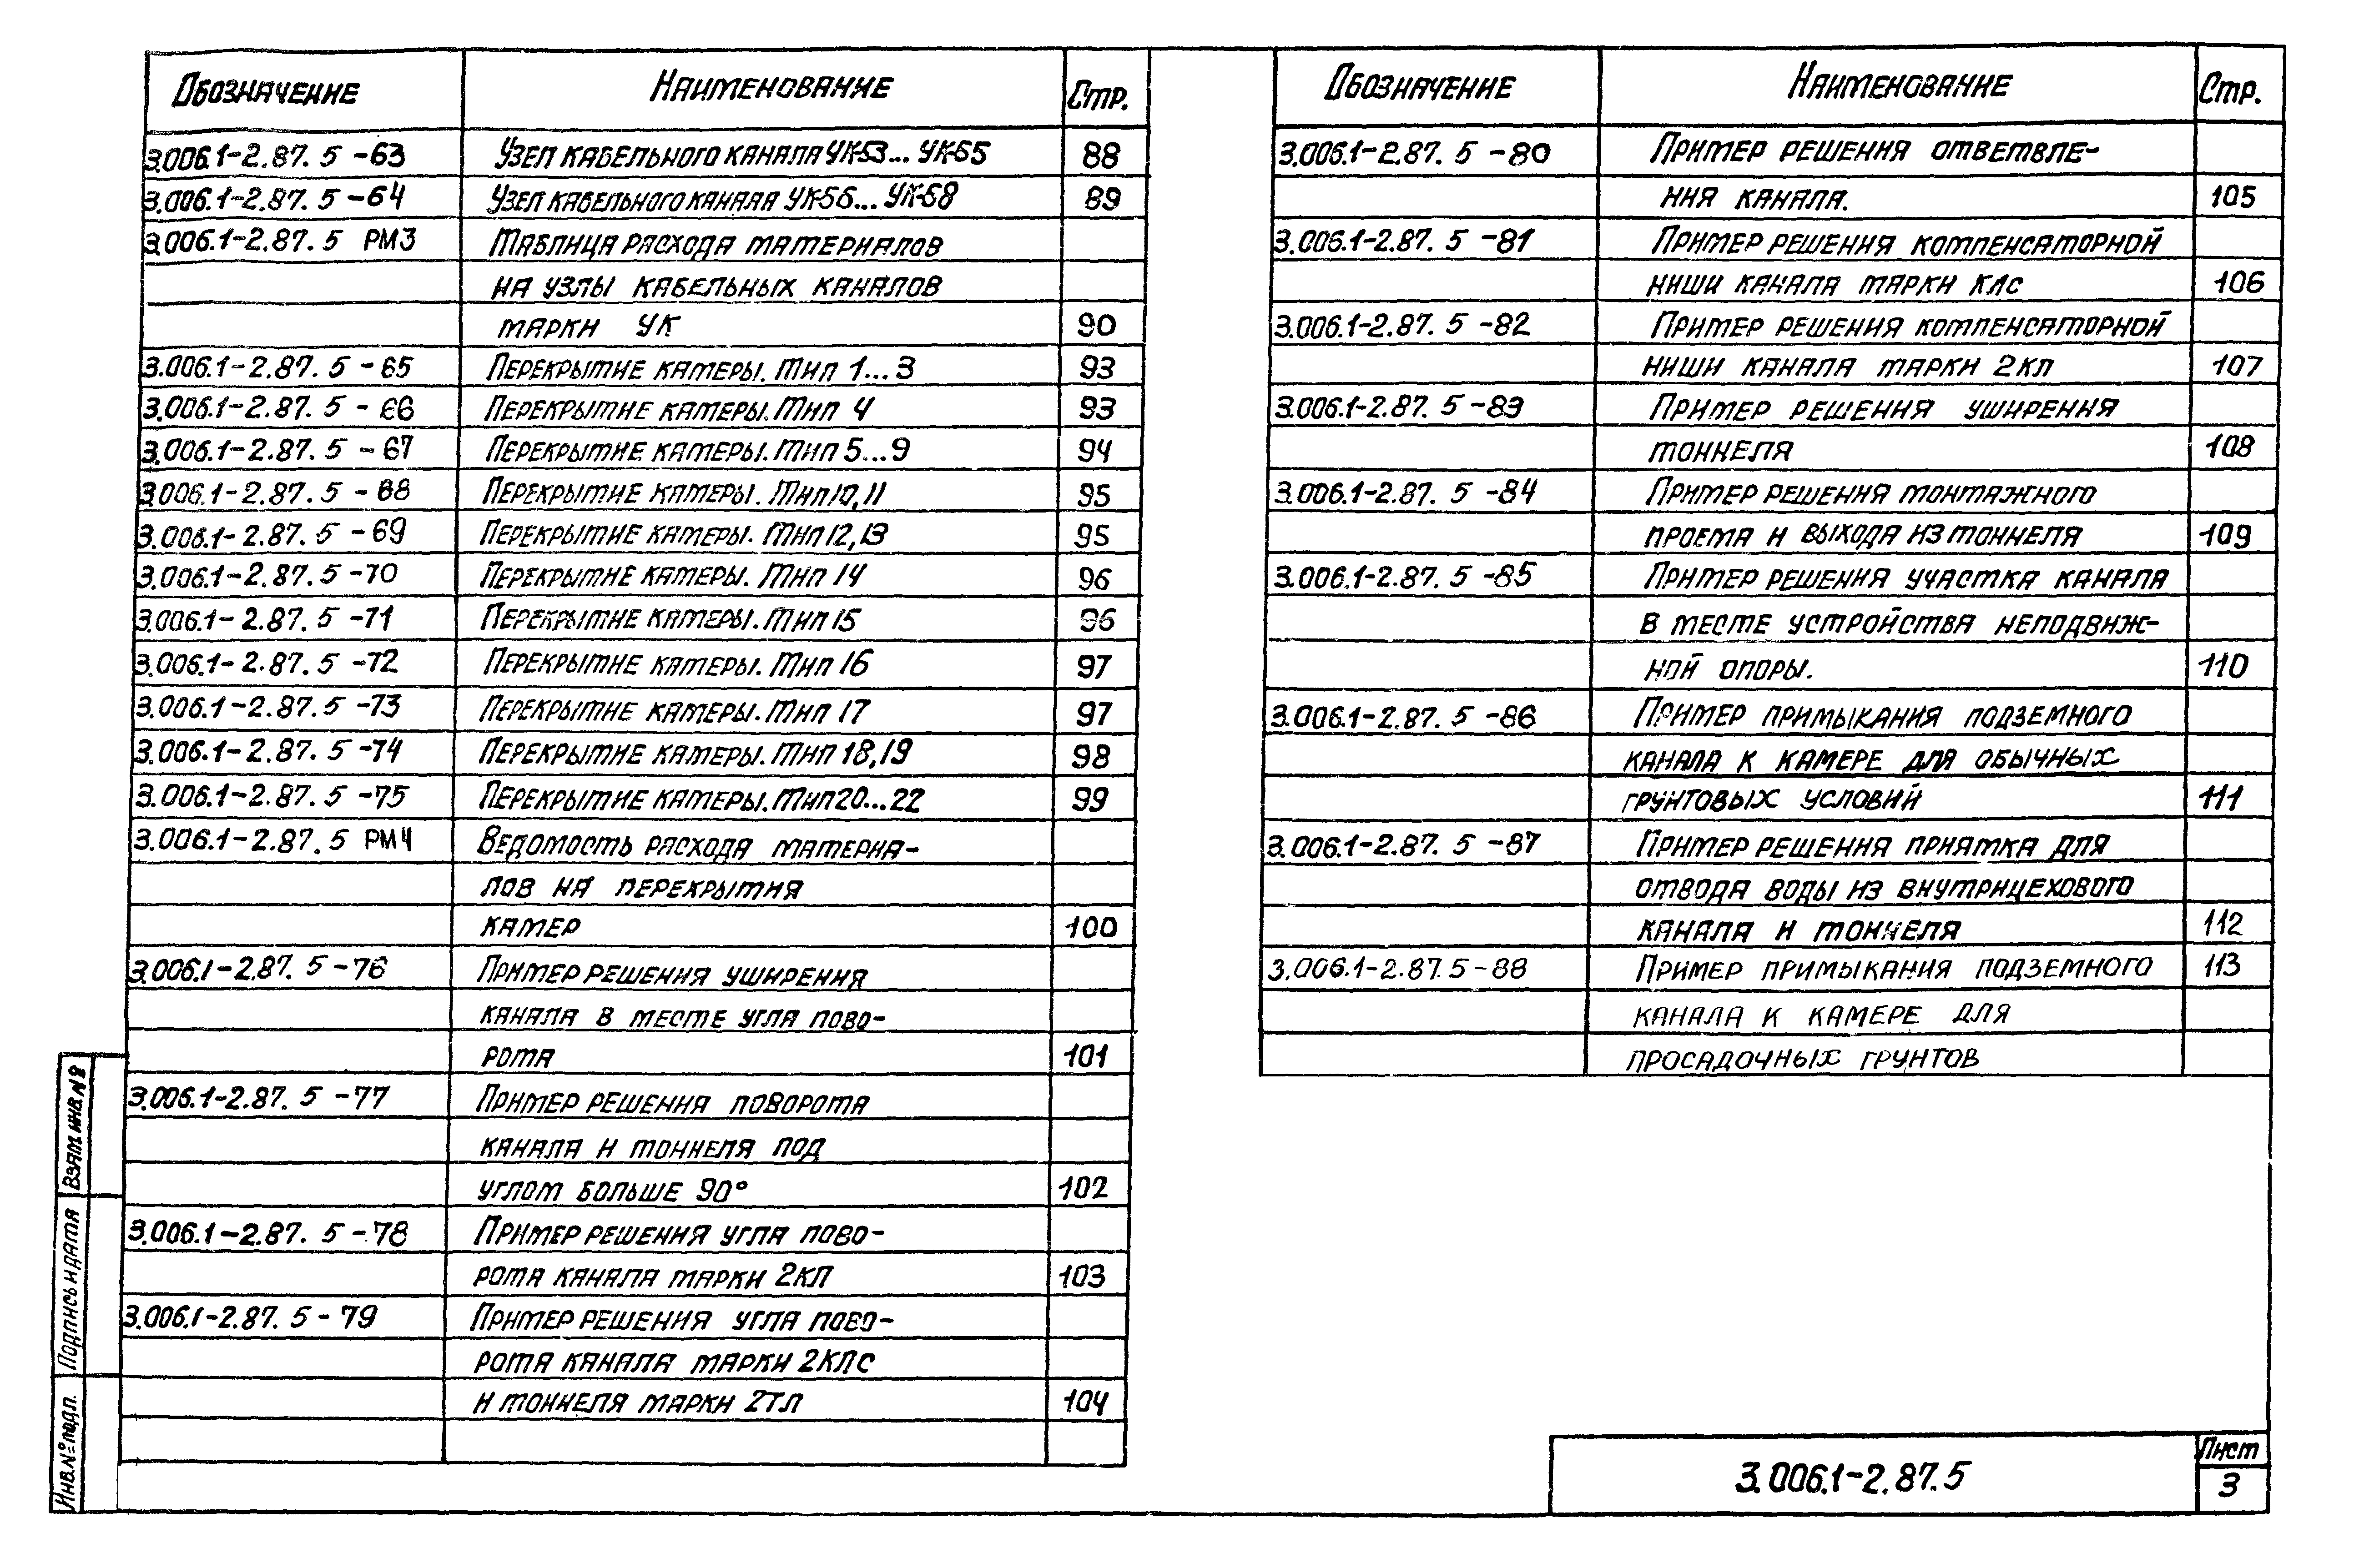 Обозначение Наименование Стр.
3.006.1-2.87. 5 -63 Узел кабельного канала УК53... УК55 88
3.006.1-2.87. 5 -64 Узел кабельного канала УК56... УК58 89
3.006.1-2.87. 5 РМ3 Таблица расхода материалов
на узлы кабельных каналов
марки УК 90
3.006.1-2.87. 5 -65 Перекрытие камеры. Тип 1...3 93
3.006.1-2.87. 5 -66 Перекрытие камеры. Тип 4 93
3.006.1-2.87. 5 -67 Перекрытие камеры. Тип 5...9 94
3.006.1-2.87. 5 -68 Перекрытие камеры. Тип 10,11 95
3.006.1-2.87. 5 -69 Перекрытие камеры. Тип 12,13 95
3.006.1-2.87. 5 -70 Перекрытие камеры. Тип 14 96
3.006.1-2.87. 5 -71 Перекрытие камеры. Тип 15 96
3.006.1-2.87. 5 -72 Перекрытие камеры. Тип 16 97
3.006.1-2.87. 5 -73 Перекрытие камеры. Тип 17 97
3.006.1-2.87. 5 -74 Перекрытие камеры. Тип 18,19 98
3.006.1-2.87. 5 -75 Перекрытие камеры. Тип 20...22 99
3.006.1-2.87. 5 РМ4 Ведомость расхода материа-
лов на перекрытия
камер 100
3.006.1-2.87. 5 -76 Пример решения уширения
канала в месте угла пово-
рота 101
3.006.1-2.87. 5 -77 Пример решения поворота
канала и тоннеля под
углом больше 90° 102
3.006.1-2.87. 5 -78 Пример решения угла пово-
рота канала марки 2КЛ 103
3.006.1-2.87. 5 - 79 Пример решения угла пово-
рота канала марки 2КЛС
и тоннеля марки 2ТЛ 104
Обозначение Наименование Стр.
3.006.1-2.87. 5 -80 Пример решения ответвле-
ния канала. 105
3.006.1-2.87. 5 -81 Пример решения компенсаторной
ниши канала марки КЛс 106
3.006.1-2.87. 5 -82 Пример решения компенсаторной
ниши канала марки 2КЛ 107
3.006.1-2.87. 5 -83 Пример решения уширения
тоннеля 108
3.006.1-2.87. 5 -84 Пример решения монтажного
проема и выхода из тоннеля 109
3.006.1-2.87. 5 -85 Пример решения участка канала
в месте устройства неподвиж-
ной опоры. 110
3.006.1-2.87. 5 -86 Пример примыкания подземного
канала к камере для обычных
грунтовых условий 111
3.006.1-2.87. 5 -87 Пример решения приямка для
отвода воды из внутрицехового
канала и тоннеля 112
3.006.1-2.87.5-88 Пример примыкания подземного 113
канала к камере для
просадочных грунтов
Взам инв.№
Подпись и дата
Инв.№ подл.
3.006.1-2.87.5
Лист
3